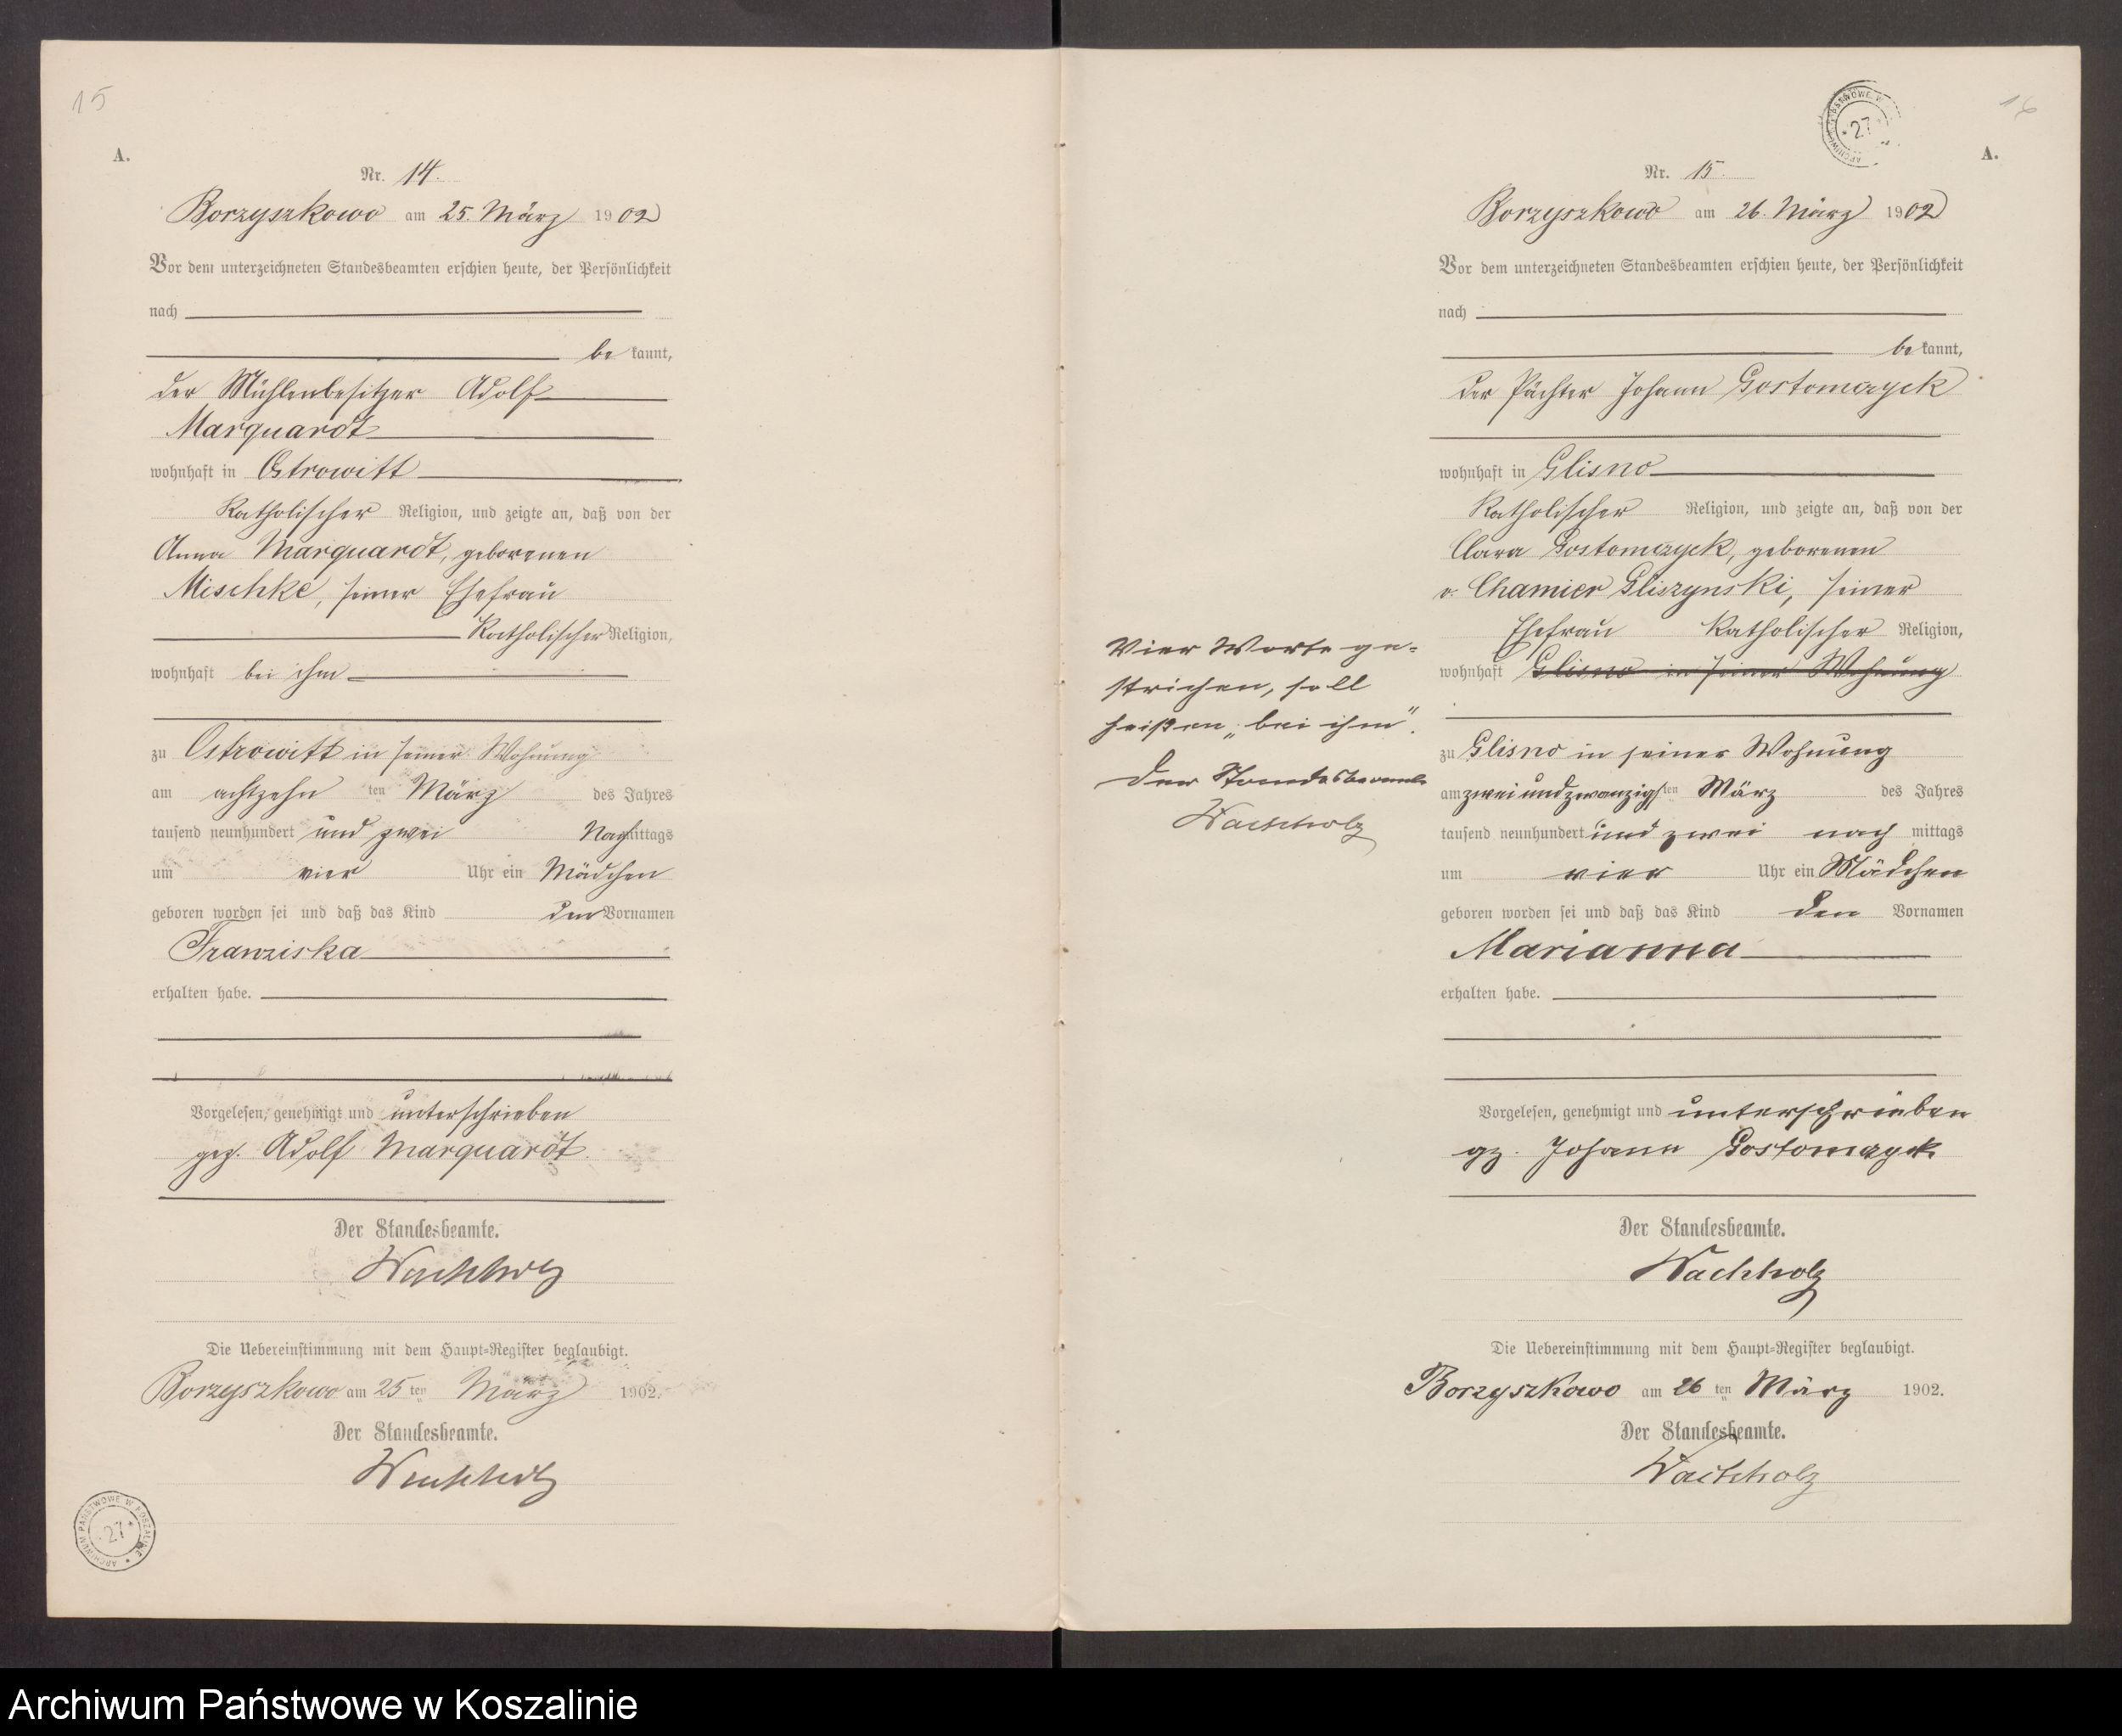 15
A.
Nr. 14.
Borzyszkowo am 25. März 1902
Vor dem unterzeichneten Standesbeamten erschien heute, der Persönlichkeit
nach
be kannt,
der Mühlenbesitzer Adolf
Marquardt
wohnhaft in Ostrowitt
Katholischer Religion, und zeigte an, daß von der
Anna Marquardt, geborenen
Mischke, seiner Ehefrau
Katholischer Religion,
wohnhaft bei ihm
zu Ostrowitt in seiner Wohnung
am achtzehn ten März des Jahres
tausend neunhundert und zwei Nachmittags
um vier Uhr ein Mädchen
geboren worden sei und daß das Kind den Vornamen
Franziska
erhalten habe.
Vorgelesen, genehmigt und unterschrieben
gez. Adolf Marquardt.
Der Standesbeamte.
Wachholz
Die Uebereinstimmung mit dem Haupt-Register beglaubigt.
Borzyszkowo am 25 ten März 1902.
Der Standesbeamte.
Wachholz
ARCHIWUM PAŃSTWOWE W KOSZALINIE
27
16
ARCHIWUM PAŃSTWOWE W
27
A.
Nr. 15.
Borzyszkowo am 26. März 1902
Vor dem unterzeichneten Standesbeamten erschien heute, der Persönlichkeit
nach
be kannt,
der Pächter Johann Gostomczyck
wohnhaft in Glisno
Katholischer Religion, und zeigte an, daß von der
Clara Gostomczyck, geborenen
v. Chamier Gliszynski, seiner
Ehefrau Katholischer Religion,
wohnhaft Glisno in seiner Wohnung
Vier Worte ge-
strichen, soll
heißen „bei ihm".
Der Standesbeamte
Wachholz
zu Glisno in seiner Wohnung
am zwei und zwanzigsten März des Jahres
tausend neunhundert und zwei nach mittags
um vier Uhr ein Mädchen
geboren worden sei und daß das Kind den Vornamen
Marianna
erhalten habe.
Vorgelesen, genehmigt und unterschrieben
gz. Johann Gostomczyck.
Der Standesbeamte.
Wachholz
Die Uebereinstimmung mit dem Haupt-Register beglaubigt.
Borzyszkowo am 26 ten März 1902.
Der Standesbeamte.
Wachholz
Archiwum Państwowe w Koszalinie